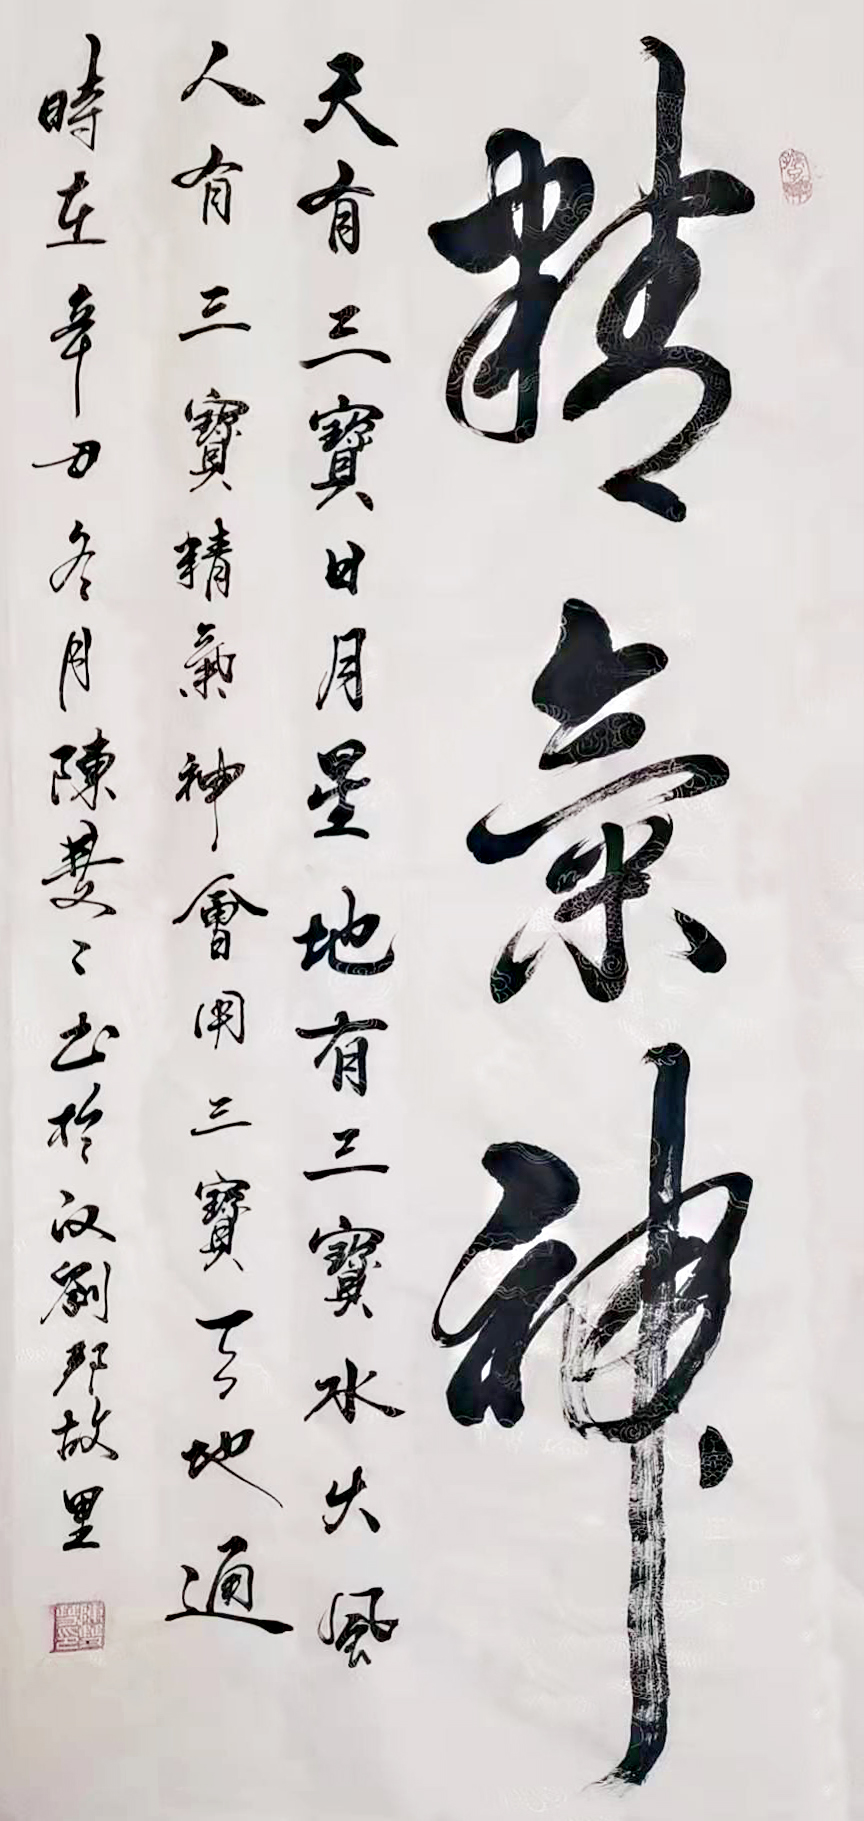 精氣神
天有三寶日月星地有三寶水火風
人有三寶精氣神會用三寶天地通
時在辛丑冬月陳雙〻書於漢劉邦故里